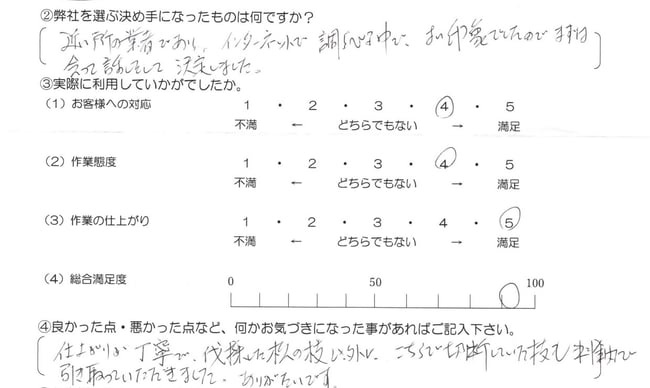 ②弊社を選ぶ決め手になったものは何ですか？
近い所の業者であり、インターネットで調べる中で、良い印象でしたのでまずは
会って話をして決定しました。
③実際に利用していかがでしたか。
（1）お客様への対応 1 ・ 2 ・ 3 ・ 4 ・ 5
不満 ← どちらでもない → 満足
（2）作業態度 1 ・ 2 ・ 3 ・ 4 ・ 5
不満 ← どちらでもない → 満足
（3）作業の仕上がり 1 ・ 2 ・ 3 ・ 4 ・ 5
不満 ← どちらでもない → 満足
（4）総合満足度 0 50 100
④良かった点・悪かった点など、何かお気づきになった事があればご記入下さい。
仕上がりが丁寧で、伐採した木の枝以外に、こちらで切断していた枝も
引き取っていただきました。ありがたいです。